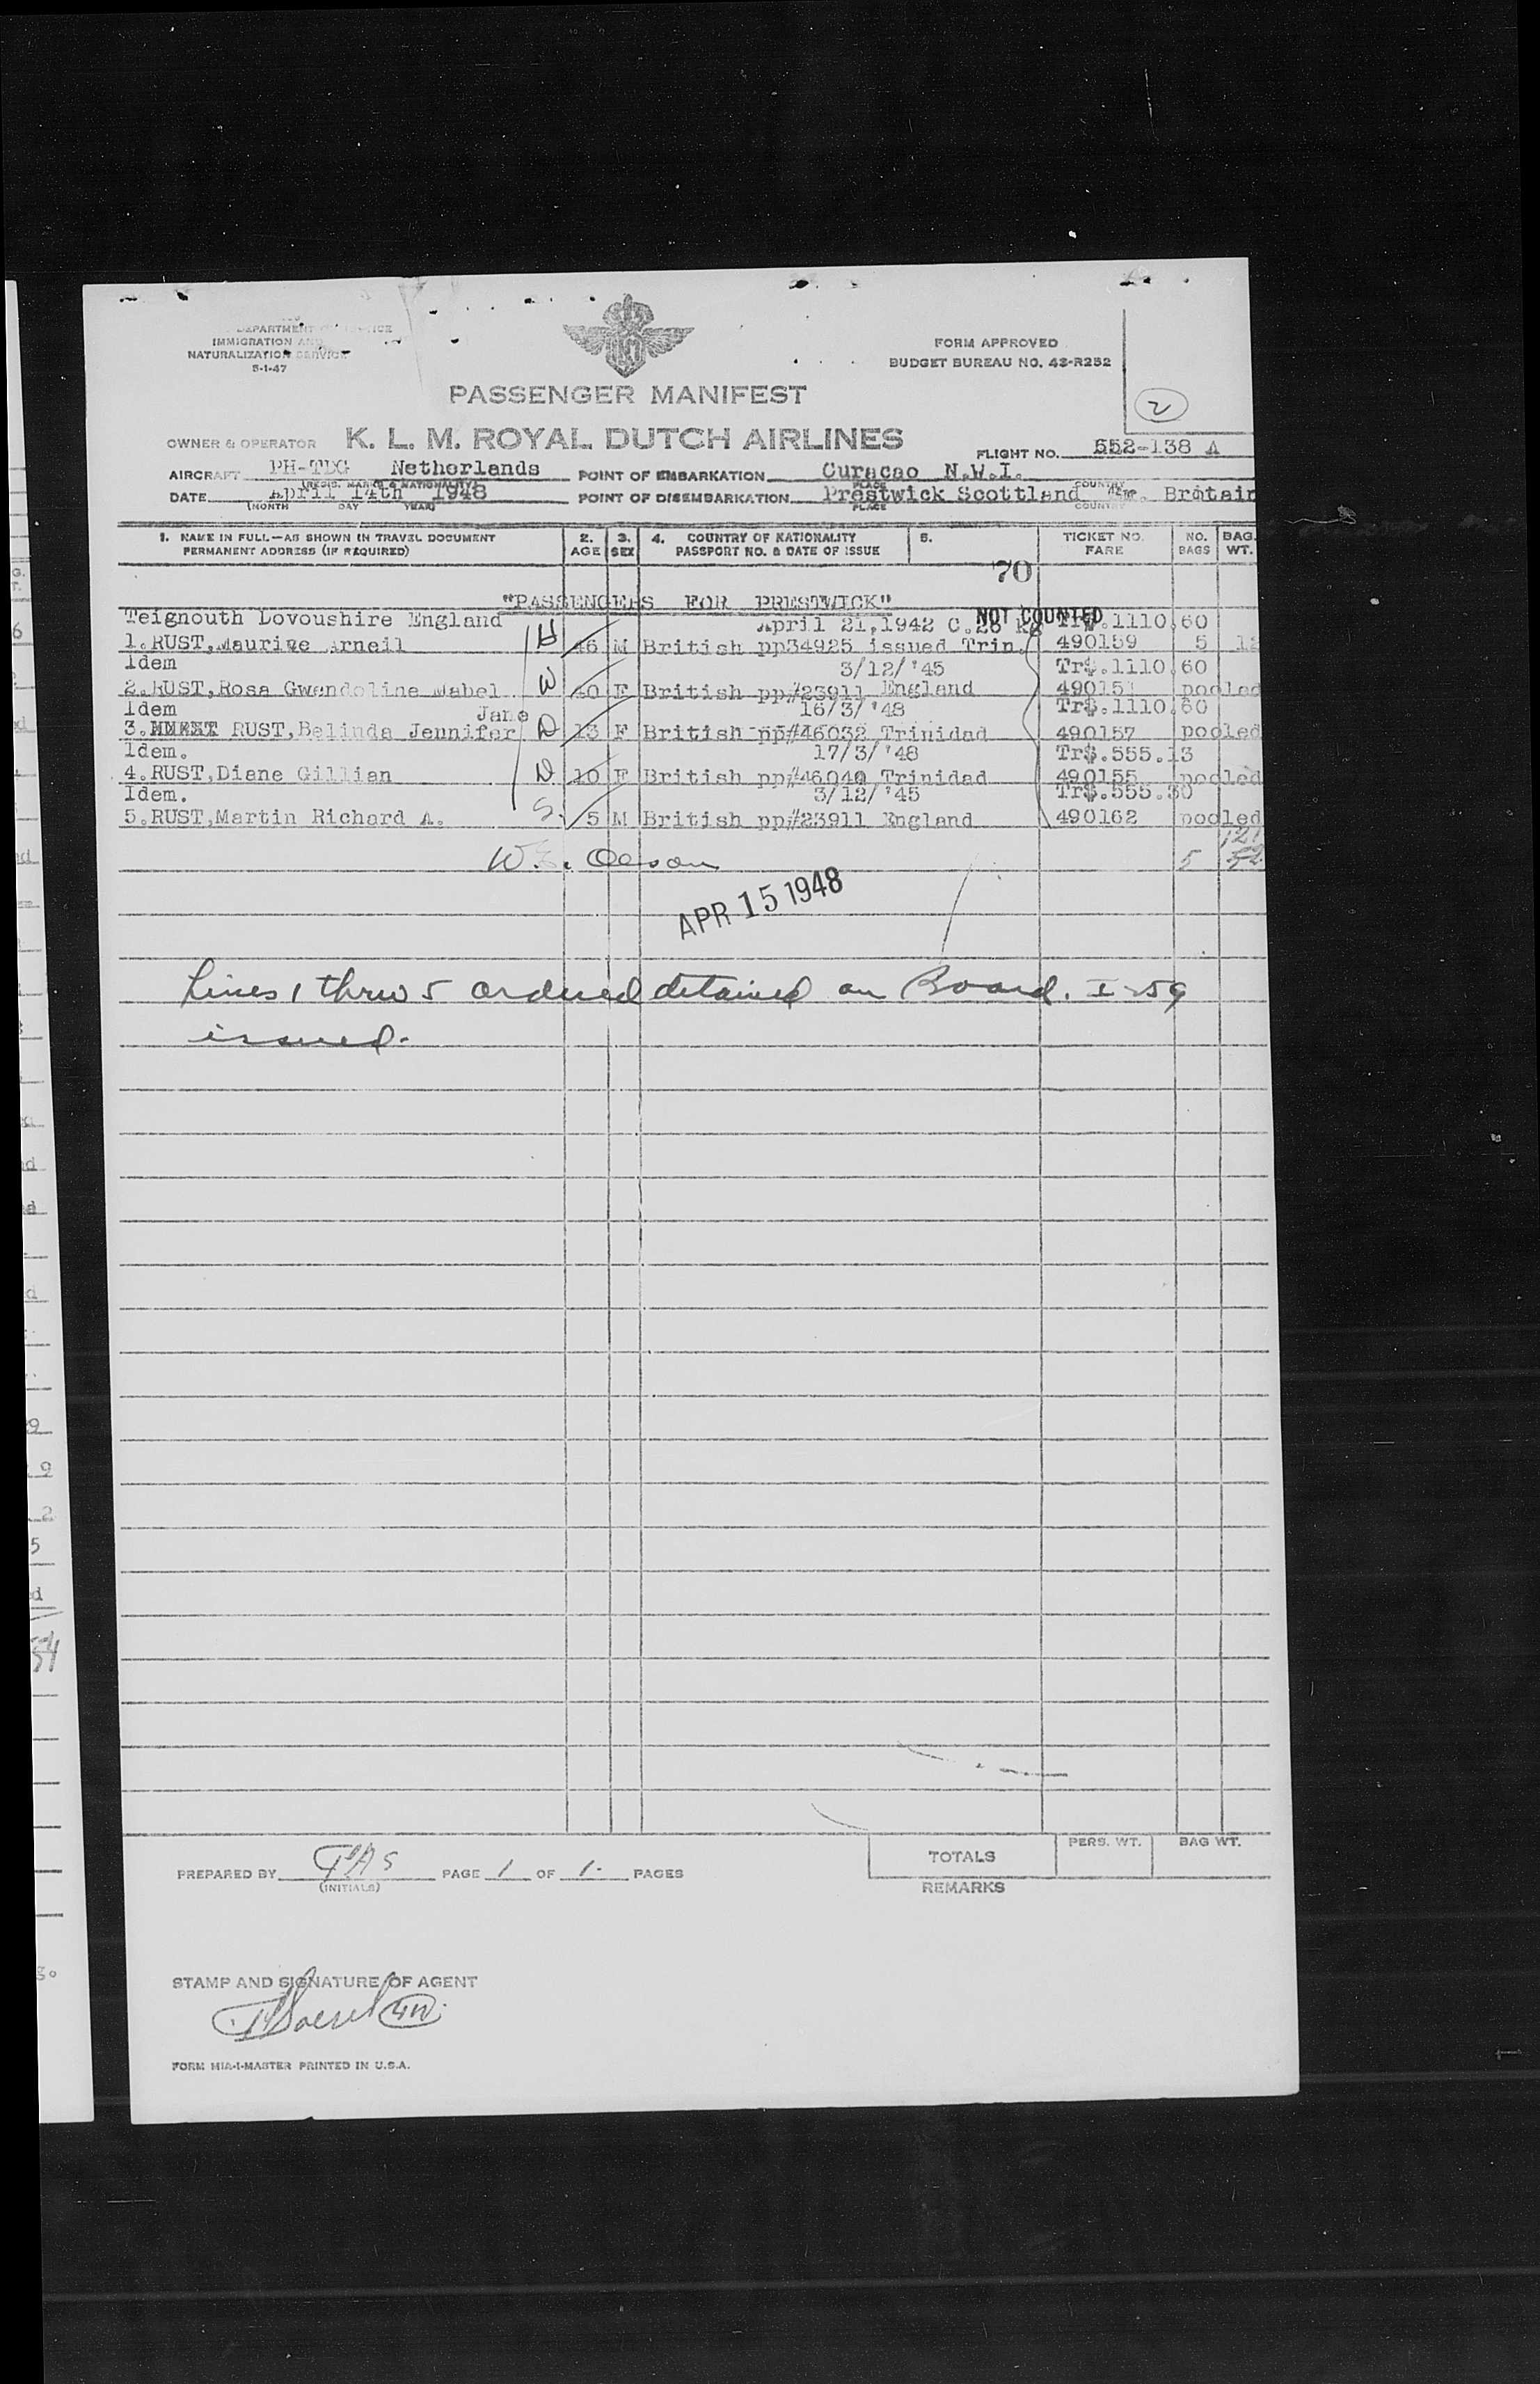 DEPARTMENT OF JUSTICE
IMMIGRATION AND
NATURALIZATION SERVICE
5-1-47
FORM APPROVED
BUDGET BUREAU NO. 43-R252
2
PASSENGER MANIFEST
OWNER & OPERATOR K. L. M. ROYAL DUTCH AIRLINES
FLIGHT NO. 552-138 A
AIRCRAFT PH-TDG Netherlands POINT OF EMBARKATION Curacao N.W.I.
(REGIS. MARKS & NATIONALITY) PLACE COUNTRY
DATE April 14th 1948 POINT OF DISEMBARKATION Prestwick Scottland Britain
(MONTH DAY YEAR) PLACE COUNTRY
1. NAME IN FULL—AS SHOWN IN TRAVEL DOCUMENT PERMANENT ADDRESS (IF REQUIRED) 2. AGE 3. SEX 4. COUNTRY OF NATIONALITY PASSPORT NO. & DATE OF ISSUE 5. TICKET NO. FARE NO. BAGS BAG. WT.
70
"PASSENGERS FOR PRESTWICK"
NOT COUNTED
Teignouth Lovoushire England April 21,1942 C.26 Kg .1110.60
1.RUST,Maurice Arneil H 46 M British pp34925 issued Trin. 490159 5 12
Idem 3/12/'45 Tr$.1110.60
2.RUST,Rosa Gwendoline Mabel W 40 F British pp#23911 England 490151 pooled
Idem Jane 16/3/'48 Tr$.1110.60
3. RUST,Belinda Jennifer D 13 F British pp#46032 Trinidad 490157 pooled
Idem. 17/3/'48 Tr$.555.13
4.RUST,Diane Gillian D 10 F British pp#46040 Trinidad 490155 pooled
Idem. 3/12/'45 Tr$.555.30
5.RUST,Martin Richard A. S. 5 M British pp#23911 England 490162 pooled
121
5 52
APR 15 1948
Lines 1 thru 5 ordered detained on Board. I-259
issued.
PREPARED BY PAGE 1 OF 1. PAGES
(INITIALS)
TOTALS PERS. WT. BAG WT.
REMARKS
STAMP AND SIGNATURE OF AGENT
FORM MIA-1-MASTER PRINTED IN U.S.A.